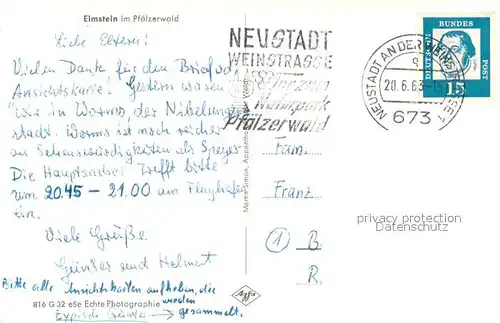 Elmstein im Pfälzerwald
Liebe Eltern!
Vielen Dank für den Brief u.
Ansichtskarte! Gestern waren
wir in Worms der Nibelungen
stadt. Worms ist noch reicher
an Sehenswürdigkeiten als Speyer.
Die Hauptsache: Trefft bitte
um 20.45 - 21.00 am Flughafen
ein.
Viele Grüße
Günter und Helmut
Bitte alle Ansichtskarten aufheben, die
werden
gesammelt.
Typisch Günter
816 G 32 eSe Echte Photographie
Agfa
NEUSTADT
WEINSTRASSE
Tor zum
Naturpark
Pfälzerwald
NEUSTADT AN DER WEINSTRASSE 1
20.6.63
673
DEUTSCHE
BUNDES
POST
15
Fam.
Franz
1 B
R.
privacy protection
Datenschutz